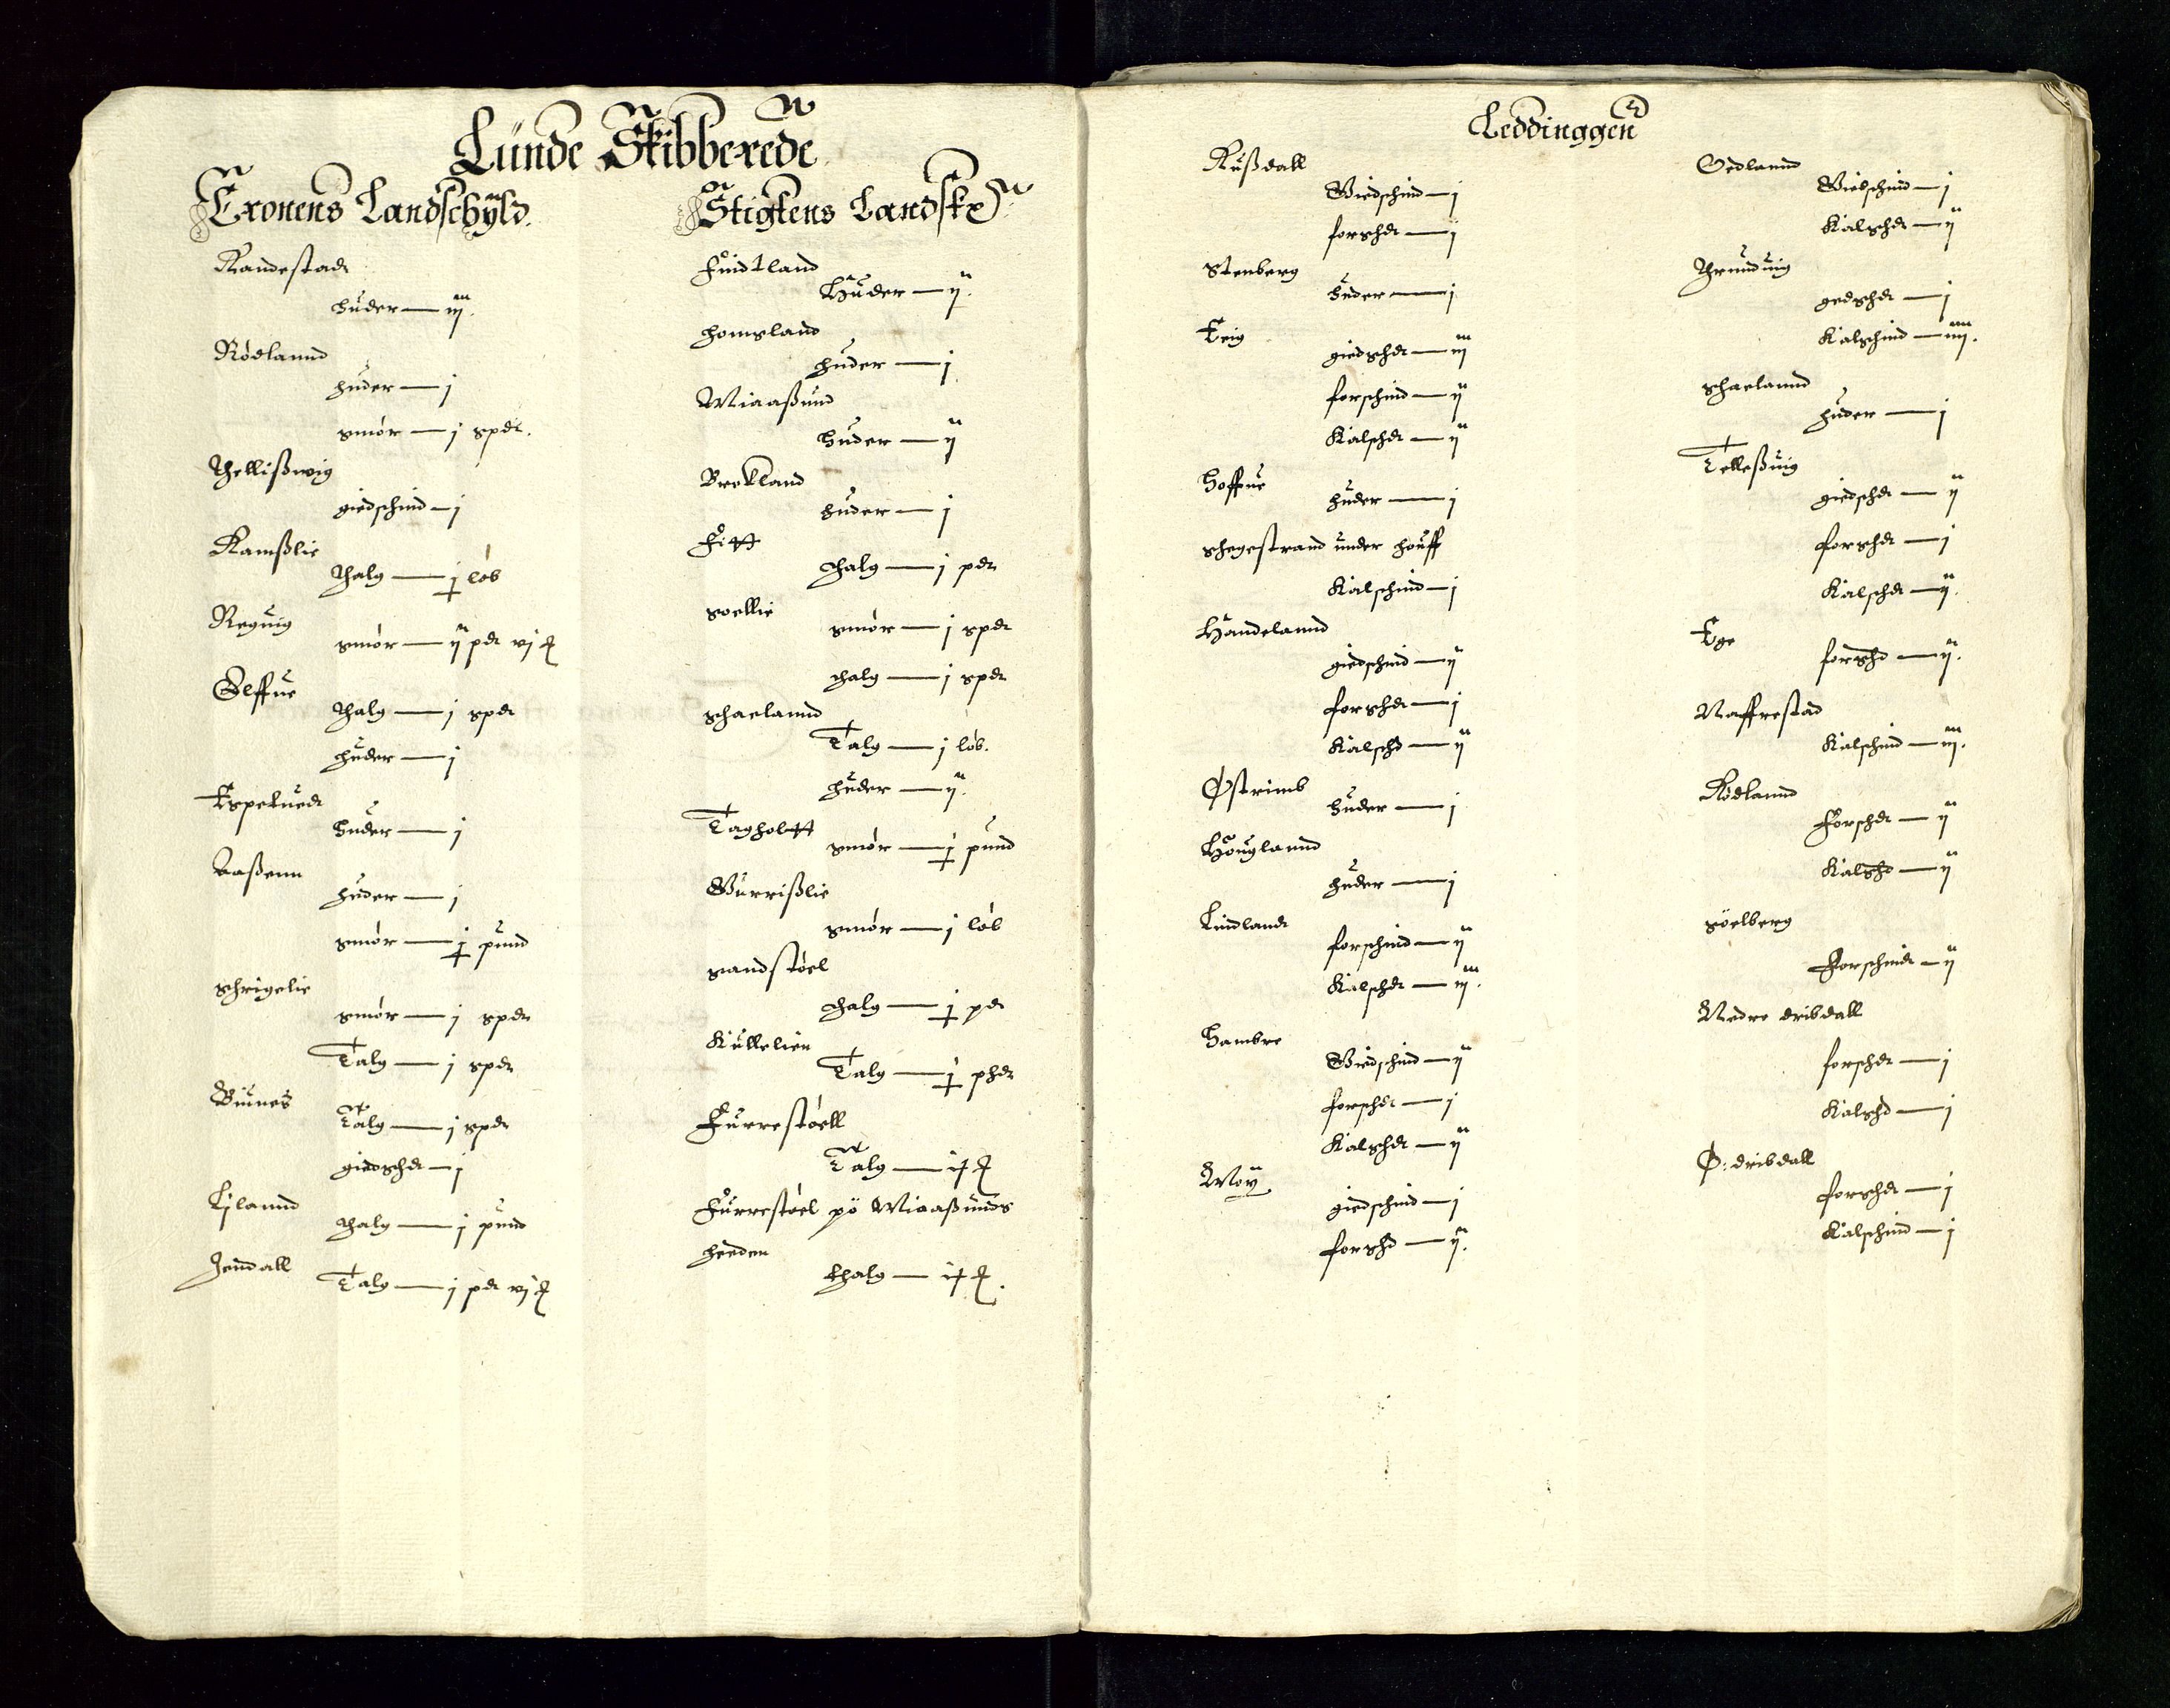 Lunde Skibberede
Cronens Landschyld.
Randestadt
huder — iij.
Rödlannd
huder — j
smör — j spdt.
Thellißwig
giedschind — j
Ramßlie
Thalg — j löb
Reguig
smör — ij pdt vj
Elffue
Thalg — j spdt
huder — j
Espetuedt
huder — j
Aaßenn
huder — j
smör — j pund
schrigelie
smör — j spdt
Talg — j spdt
Buines
Talg — j spdt
giedschdt — j
Eilannd
Thalg — j pund
Jendall
Talg — j pdt vj
Stigtens Landsk
Findtland
Huder — ij.
homsland
huder — j
Miaaßund
huder — ij
Brekland
huder — j
Fitt
Thalg — j pdt
soellie
smör — j spdt
Thalg — j spdt
schaelannd
Talg — j löb.
huder — ij.
Tagholtt
smör — j pund
Würrißlie
smör — j löb
sandstöel
Thalg — j pdt
Küllelien
Talg — j phdt
Furrestöell
Talg —
Furrestöel pö Miaaßunds
heeden
thalg —
Leddinggen
Rußdall
Giedschind — j
forschdt — ij
Stenberg
huder — j
Eeig
giedschdt — iij
forschind — ij
Kalschdt — ij
Hoffue
huder — j
schegestrand under houff
Kalschind — j
Handelannd
giedschind — ij
forschdt — j
Kalschd — ij
Østrimb
huder — j
Houglannd
huder — j
Lindlandt
forschind — ij
Kalschdt — iij.
Hambre
Giedschind — ij
forschdt — j
Kalschdt — ij
Moy
giedschind — j
forschd — ij.
Oedlannd
Giedschind — j
Kalschdt — ij
Thrunduig
gedschdt — j
Kalschind — iiij.
schaelannd
huder — j
Telleßuig
giedschdt — ij
forschdt — j
Kalschdt — ij.
Ege
forschd — ij.
Naffrestad
Kalschind — iij.
Rödlannd
Forschdt — ij
Kalschd — ij
söelberg
Forschindt — ij
Nedre dribdall
forschdt — j
Kalschd — j
Ø: dribdall
forschdt — j
Kalschind — j